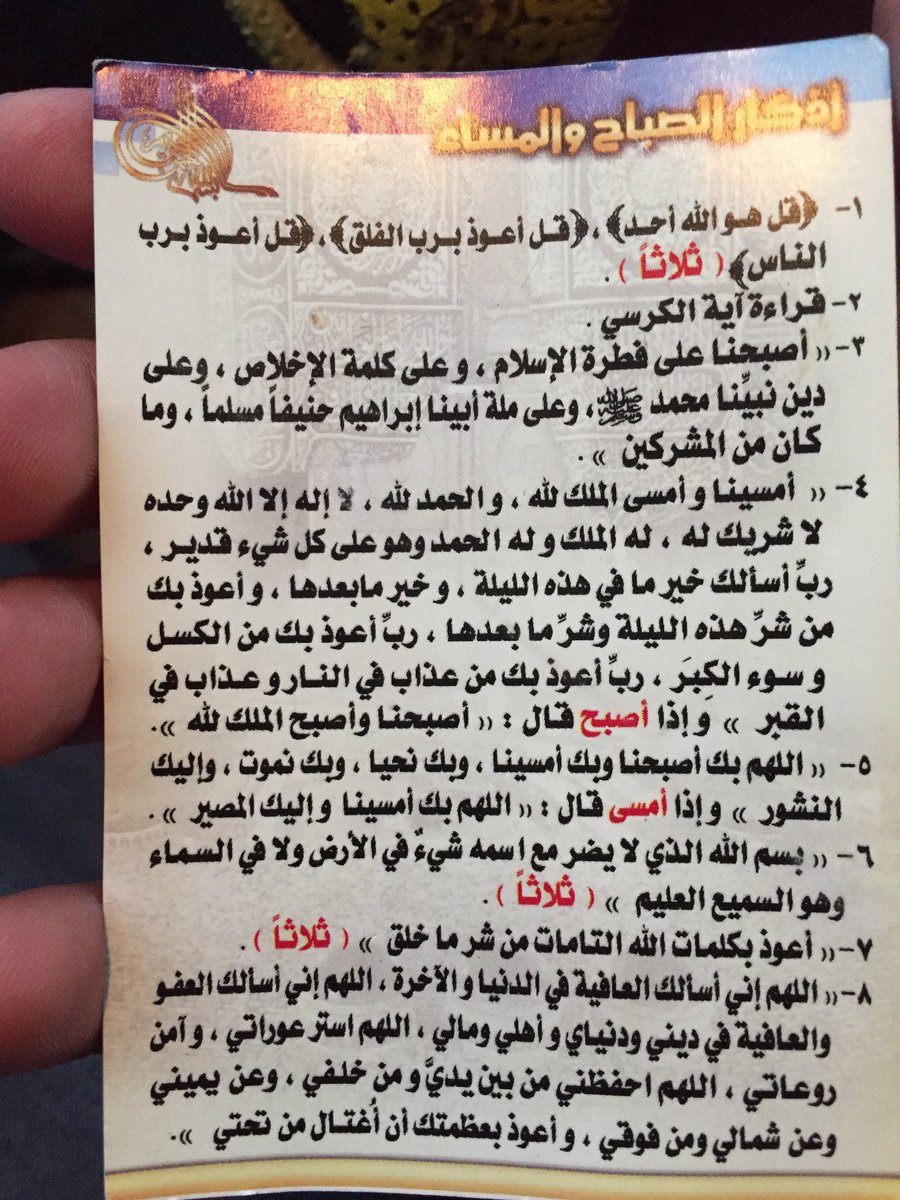 أذكار الصباح والمساء
١- ﴿قل هو الله أحد﴾ ، ﴿قل أعوذ برب الفلق﴾ ، ﴿قل أعوذ برب
الناس﴾ ( ثلاثاً ) .
٢- قراءة آية الكرسي .
٣- (( أصبحنا على فطرة الإسلام ، وعلى كلمة الإخلاص ، وعلى
دين نبيِّنا محمد ﷺ ، وعلى ملة أبينا إبراهيم حنيفاً مسلماً ، وما
كان من المشركين )) .
٤- (( أمسينا وأمسى الملك لله ، والحمد لله ، لا إله إلا الله وحده
لا شريك له ، له الملك وله الحمد وهو على كل شيء قدير ،
ربِّ أسألك خير ما في هذه الليلة ، وخير مابعدها ، وأعوذ بك
من شرِّ هذه الليلة وشرِّ ما بعدها ، ربِّ أعوذ بك من الكسل
وسوء الكِبَر ، ربِّ أعوذ بك من عذاب في النار وعذاب في
القبر )) وإذا أصبح قال : (( أصبحنا وأصبح الملك لله )).
٥- (( اللهم بك أصبحنا وبك أمسينا ، وبك نحيا ، وبك نموت ، وإليك
النشور )) وإذا أمسى قال : (( اللهم بك أمسينا وإليك المصير )) .
٦- (( بسم الله الذي لا يضر مع اسمه شيءٌ في الأرض ولا في السماء
وهو السميع العليم )) ( ثلاثاً ) .
٧- (( أعوذ بكلمات الله التامات من شر ما خلق )) ( ثلاثاً ) .
٨- (( اللهم إني أسألك العافية في الدنيا والآخرة ، اللهم إني أسألك العفو
والعافية في ديني ودنياي وأهلي ومالي ، اللهم استر عوراتي ، وآمن
روعاتي ، اللهم احفظني من بين يديَّ ومن خلفي ، وعن يميني
وعن شمالي ومن فوقي ، وأعوذ بعظمتك أن أُغتال من تحتي )).